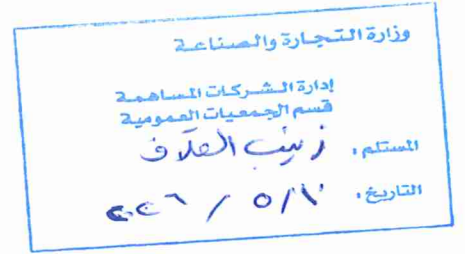 وزارة التجارة والصناعة
إدارة الشركات المساهمة
قسم الجمعيات العمومية
المستلم: زينب العلاف
التاريخ: / ٥ / ٢٠٢٦